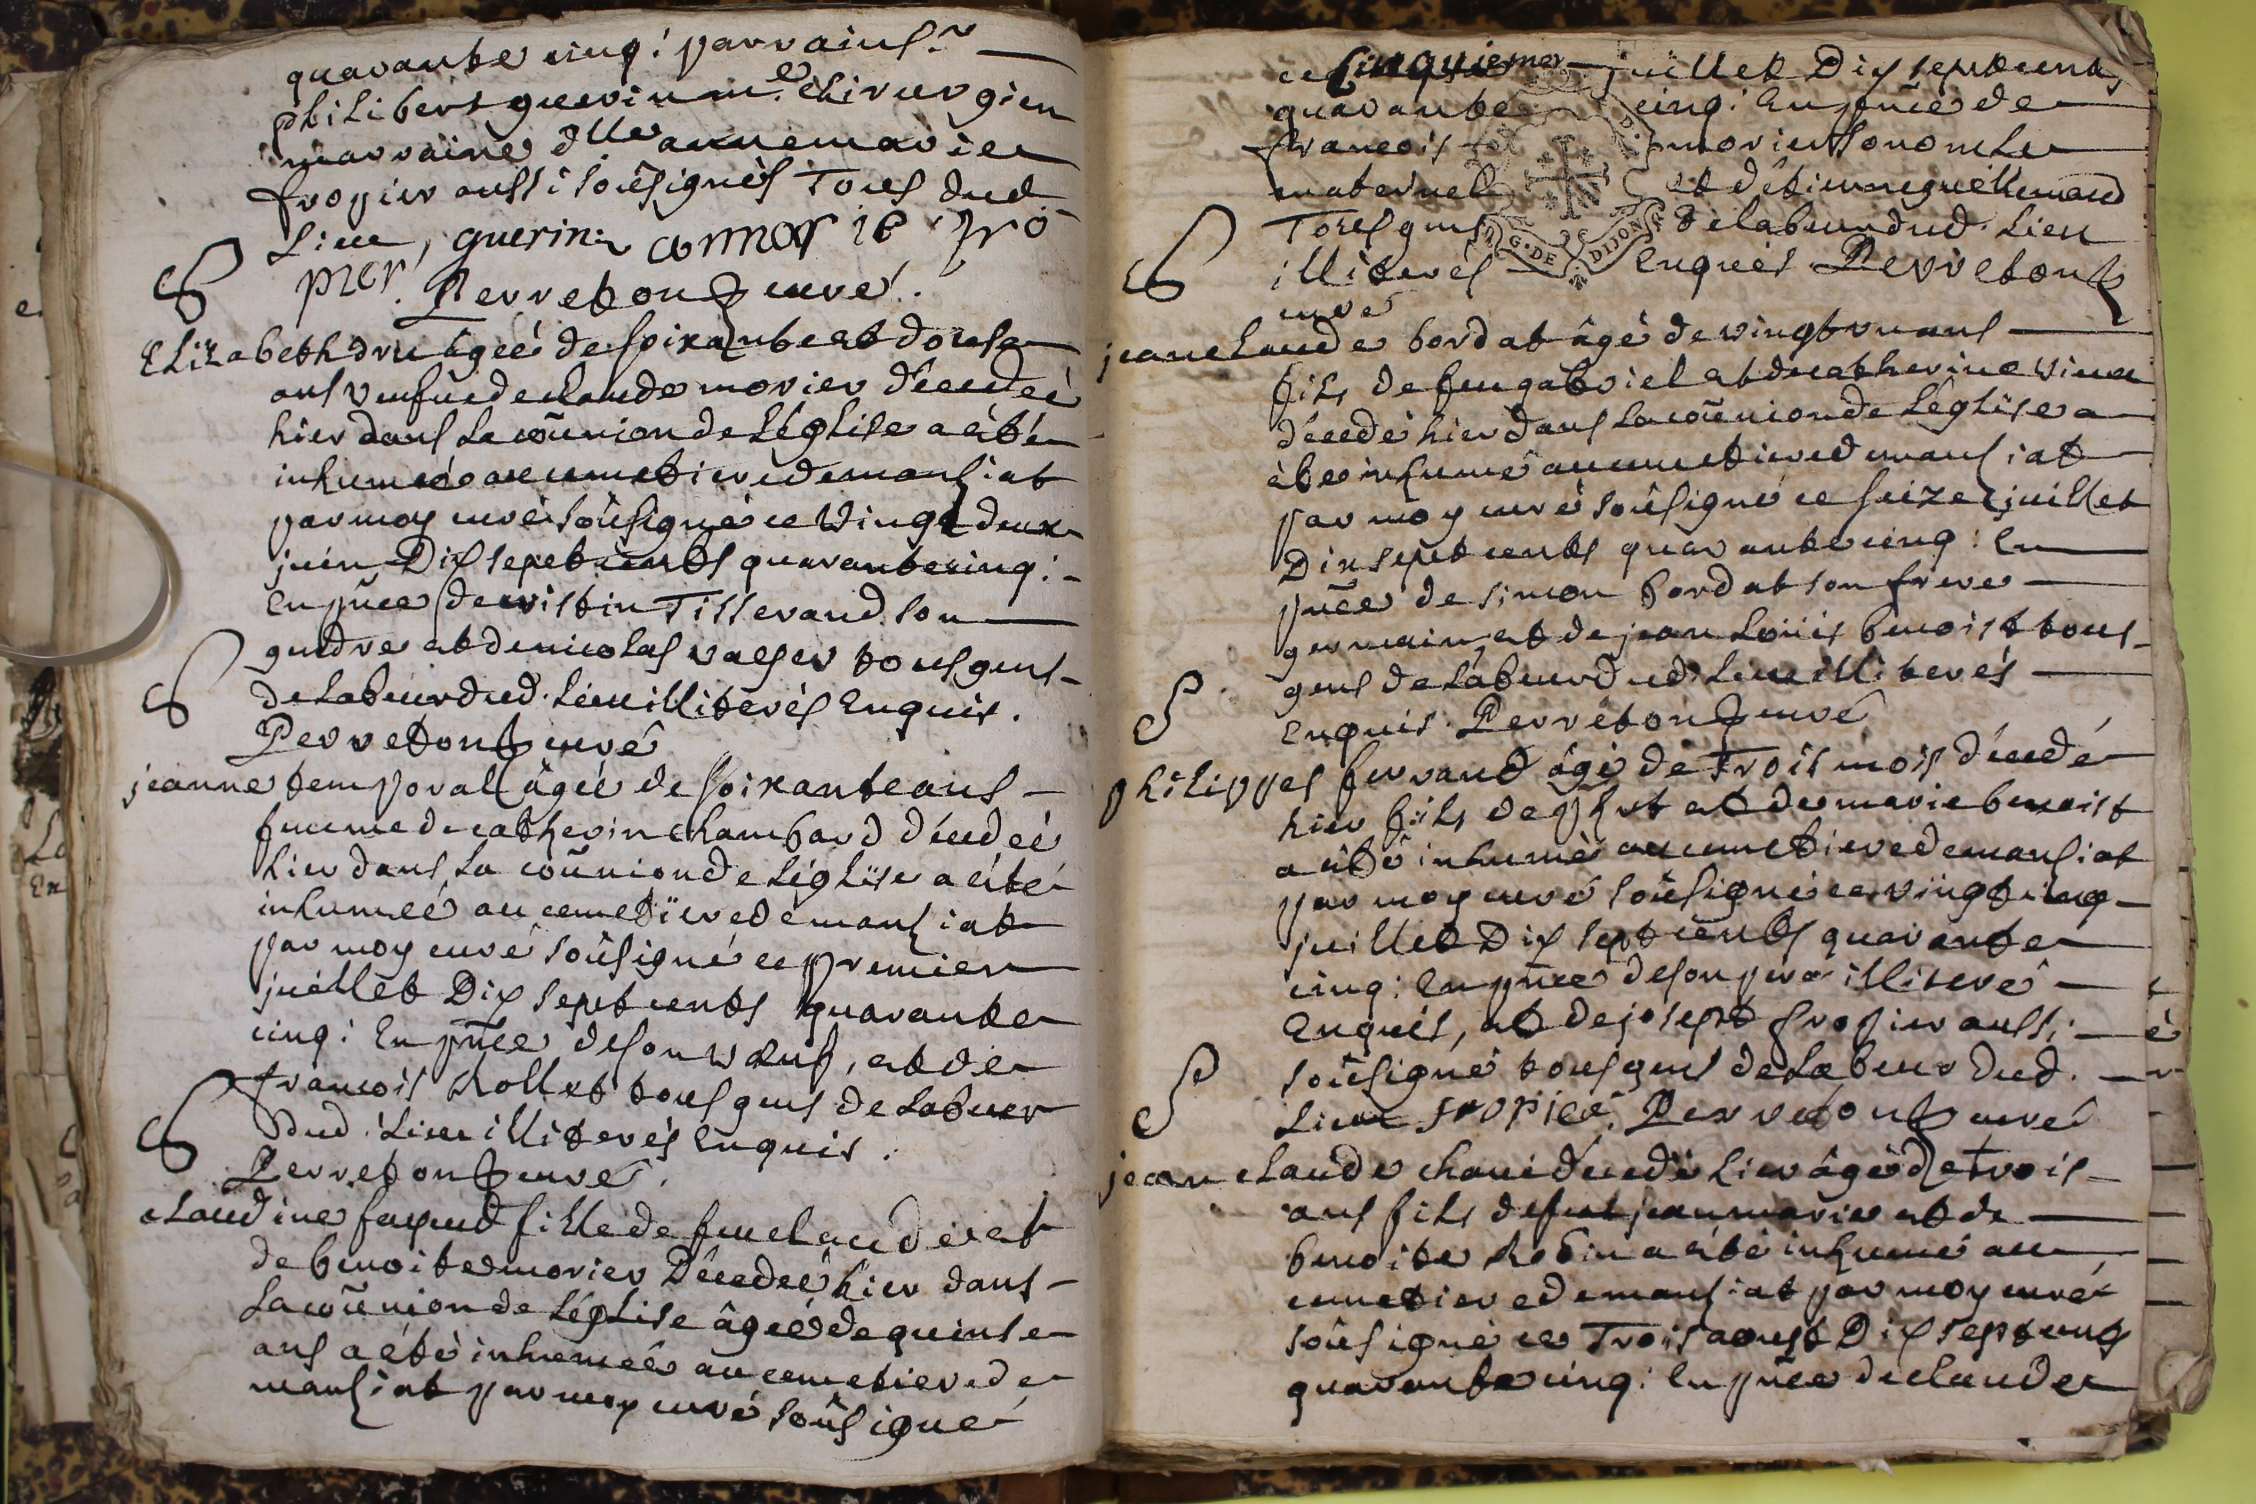 quarante cinq: parrains.r
philibert guerin me. chirurgien
marraine dlle anne marie
fropier aussi soûsignès Tous dud
Lieu, guerin anne marie fro
pier. Perreton curé.
Elizabeth dru âgée de soixante et douse
ans veufue de claude morier décedée
hier dans la coũnion de l'église a été
inhumée au cemetiere de mansiat
par moy curé soûsigné ce vingt deux
juin Dix sept cents quarante cinq:
En pñce de cristin Tisserand son
gendre et de nicolas valser tous gens
de Labeur dud. Lieu illiterés Enquis.
Perreton curé
jeanne temporal âgée de soixante ans
femme de catherin chambard décedée
hier dans la coũnion de léglise a été
inhumée au cemetiere de mansiat
par moy curé soûsigné ce premier
juillet Dix sept cents quarante
cinq: En pñce de son veuf, et de
francois Rollet tous gens de Labeur
dud. Lieu illiterés Enquis.
Perreton curé.
claudine feyeud fille de feu claude et
de benoite morier Décedée hier dans
la coũnion de Léglise âgée de quinse
ans a été inhumée au cemetiere de
mansiat par moy curé soûsigné
ce Cinquieme juillet Dix sept cents
quarante cinq: En pñce de
francois morier son oncle
maternel et d'étienne guillemaud
Tous gens de labeur dud. Lieu
illiterés Enquis Perreton
curé
jean claude bordat âgé de vingt un ans
fils de feu gabriel et de catherine vieux
décedé hier dans la coũnion de l'église a
été inhumé au cemetiere de mansiat
par moy curé soûsigné ce seize juillet
Dix sept cents quarante cinq: En
pñce de simon bordat son frere
germain, et de jean Loüis benoist tous
gens de Labeur dud. Lieu illiterés
Enquis. Perreton curé
philippes ferrand âgé de Trois mois décedé
hier fils de phbt et de marie benoist
a été inhumé au cemetiere de mansiat
par moy curé soûsigné ce vingt cinq
juillet Dix sept cents quarante
cinq: En pñce de son pere illiteré
Enquis, et de joseph fropier aussi
soûsigné tous gens de Labeur dud.
Lieu fropier. Perreton curé
jean claude chané décedé hier âgé de Trois
ans fils de feu jean marie et de
benoite Robin a été inhumé au
cemetiere de mansiat par moy curé
soûsigné ce Trois aoust Dix sept cents
quarante cinq: En pñce de claude
G. DE DIJON